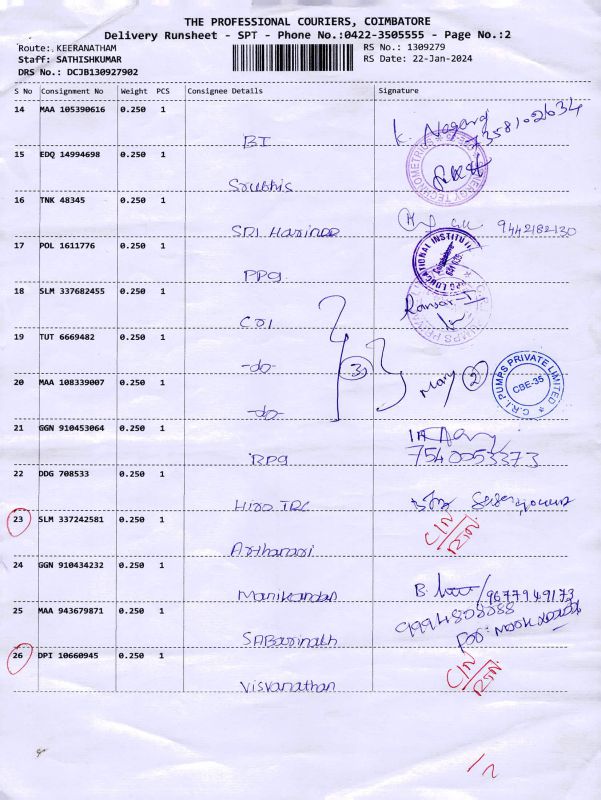 THE PROFESSIONAL COURIERS, COIMBATORE
Delivery Runsheet - SPT - Phone No.:0422-3505555 - Page No.:2
Route: KEERANATHAM RS No.: 1309279
Staff: SATHISHKUMAR RS Date: 22-Jan-2024
DRS No.: DCJB130927902
S No Consignment No Weight PCS Consignee Details Signature
14 MAA 105390616 0.250 1
BI K. 7358102634
15 EDQ 14994698 0.250 1
16 TNK 48345 0.250 1
SRI Harinee 9442182130
17 POL 1611776 0.250 1
PPG
18 SLM 337682455 0.250 1
19 TUT 6669482 0.250 1
-do- 3
20 MAA 108339007 0.250 1 2 C.R.I. PUMPS PRIVATE LIMITED CBE-35
-do-
21 GGN 910453064 0.250 1
7540053373
22 DDG 708533 0.250 1
23 SLM 337242581 0.250 1 C/N
Arthanari RTN
24 GGN 910434232 0.250 1
Manikandan B. 9677949173
25 MAA 943679871 0.250 1 9994808088
SABarinath For:
26 DPI 10660945 0.250 1 C/N
Visvanathan RTN